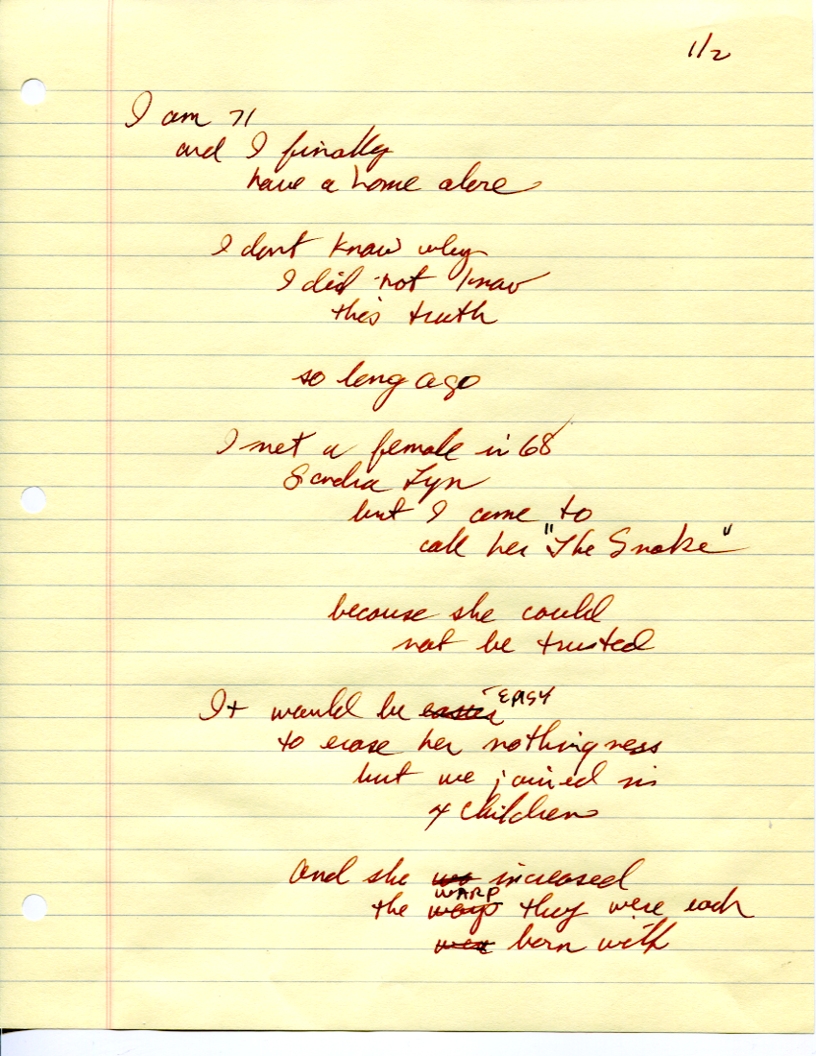 1/2
I am 71
and I finally
have a home alone
I dont know why
I did not know
this truth
so long ago
I met a female in 68
Sandra Lyn
but I come to
call her "The Snake"
because she could
not be trusted
It would be easy
to erase her nothingness
but we joined in
4 children
And she increased
the WARP they were each
born with